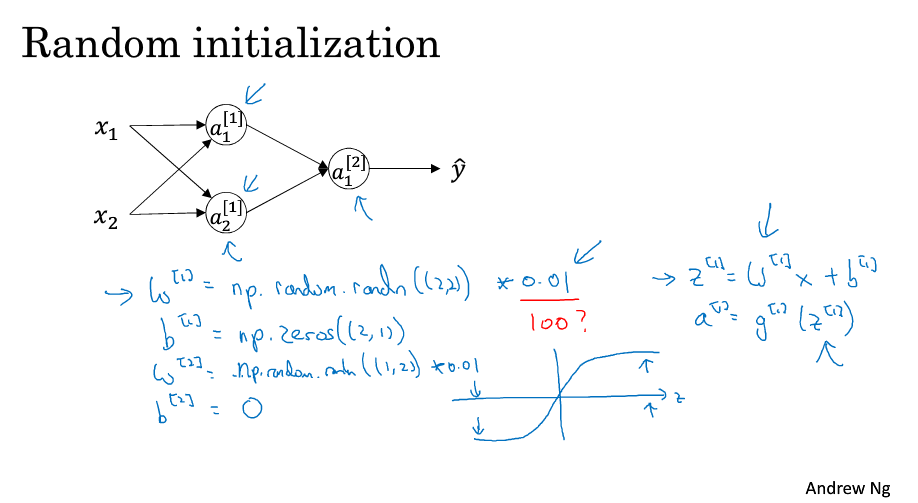 Random initialization
x₁
a₁^[1]
x₂
a₂^[1]
a₁^[2]
ŷ
→ W^[1] = np.random.randn((2,2)) * 0.01
100?
b^[1] = np.zeros((2,1))
W^[2] = np.random.randn((1,2)) * 0.01
b^[2] = 0
→ z^[1] = W^[1] x + b^[1]
a^[1] = g^[1] (z^[1])
z
Andrew Ng